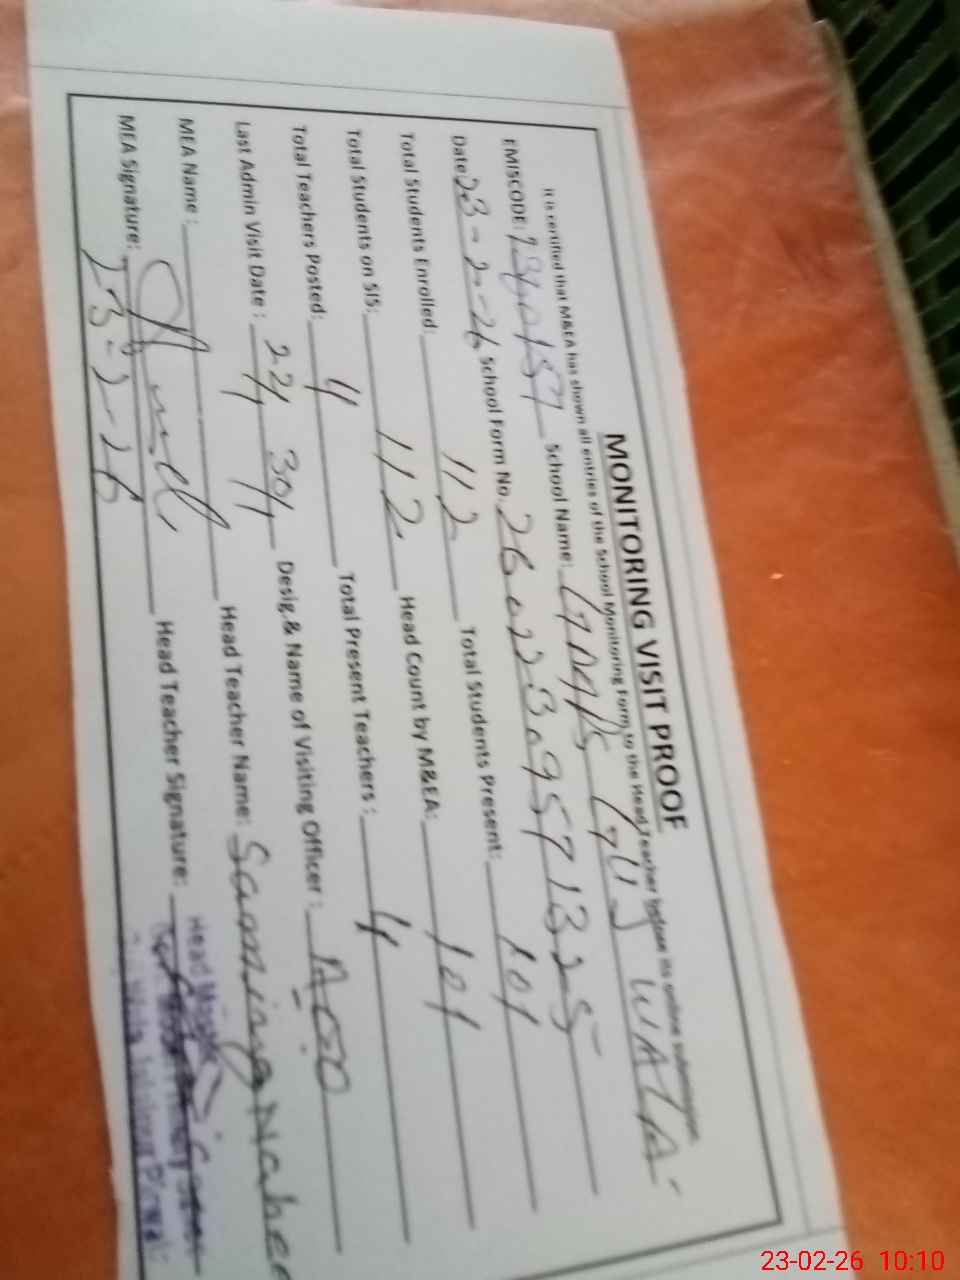 MONITORING VISIT PROOF
It is certified that M&EA has shown all entries of the School Monitoring Form to the Head Teacher before its online submission.
EMISCODE: School Name: GMPS WALA
Date: 23-2-26 School Form No. 26022309571325
Total Students Enrolled: 112 Total Students Present: 101
Total Students on SIS: 112 Head Count by M&EA: 101
Total Teachers Posted: 4 Total Present Teachers: 4
Last Admin Visit Date: Desig.& Name of Visiting Officer:
MEA Name: Head Teacher Name:
MEA Signature: Head Teacher Signature:
23-2-26
Head
23-02-26 10:10